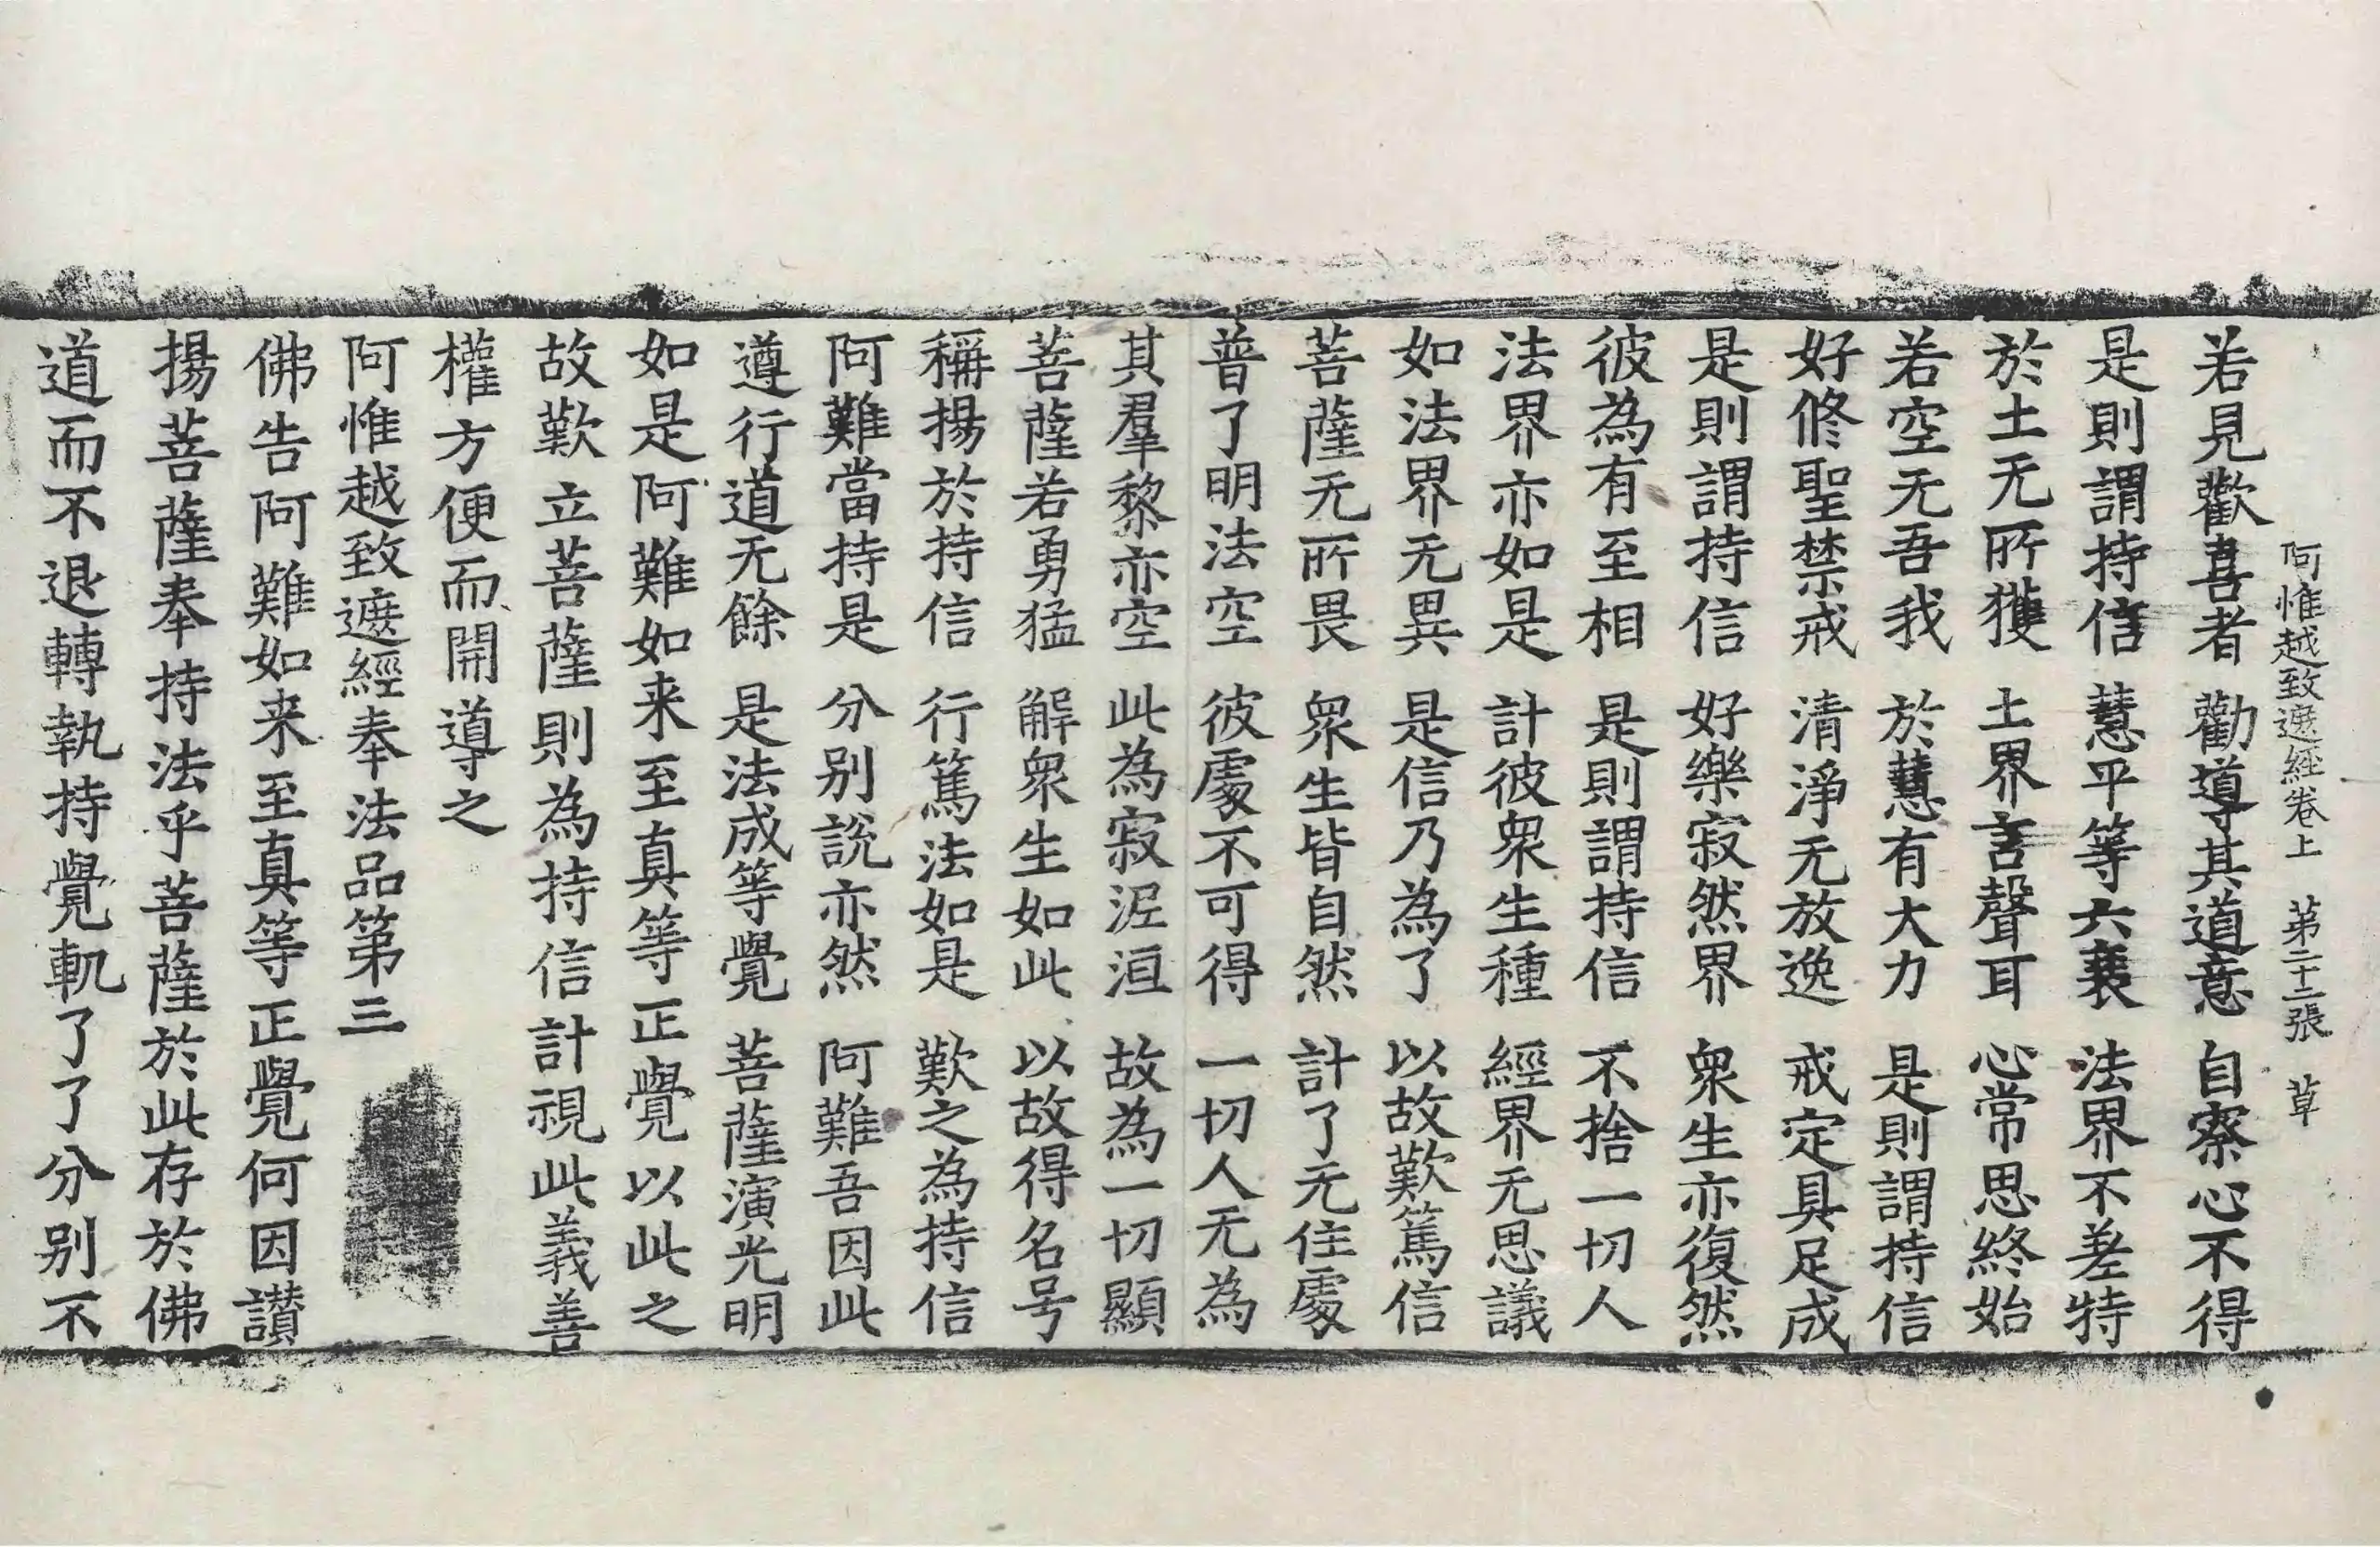 阿惟越致遮經卷上　第二十二張　草
若見歡喜者　勸導其道意　自察心不得
是則謂持信　慧平等六衰　法界不差特
於土无所獲　土界言聲耳　心常思終始
若空无吾我　於慧有大力　是則謂持信
好修聖禁戒　清淨无放逸　戒定具足成
是則謂持信　好樂寂然界　衆生亦復然
彼為有至相　是則謂持信　不捨一切人
法界亦如是　計彼衆生種　經界无思議
如法界无異　是信乃為了　以故歎篤信
菩薩无所畏　衆生皆自然　計了无住處
普了明法空　彼處不可得　一切人无為
其羣黎亦空　此為寂泥洹　故為一切顯
菩薩若勇猛　解衆生如此　以故得名号
稱揚於持信　行篤法如是　歎之為持信
阿難當持是　分别說亦然　阿難吾因此
遵行道无餘　是法成等覺　菩薩演光明
如是阿難如来至真等正覺以此之
故歎立菩薩則為持信計視此義善
權方便而開導之
阿惟越致遮經奉法品第三
佛告阿難如来至真等正覺何因讃
揚菩薩奉持法乎菩薩於此存於佛
道而不退轉執持覺軏了了分别不